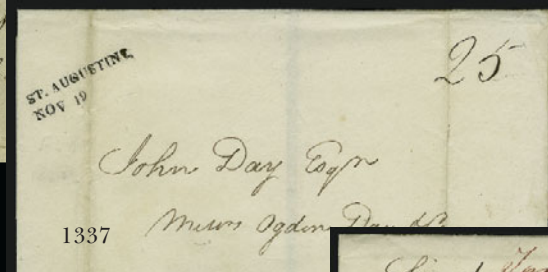 ST. AUGUSTINE
NOV 19
25
John Day Esqr
Messrs Ogden Day &
1337